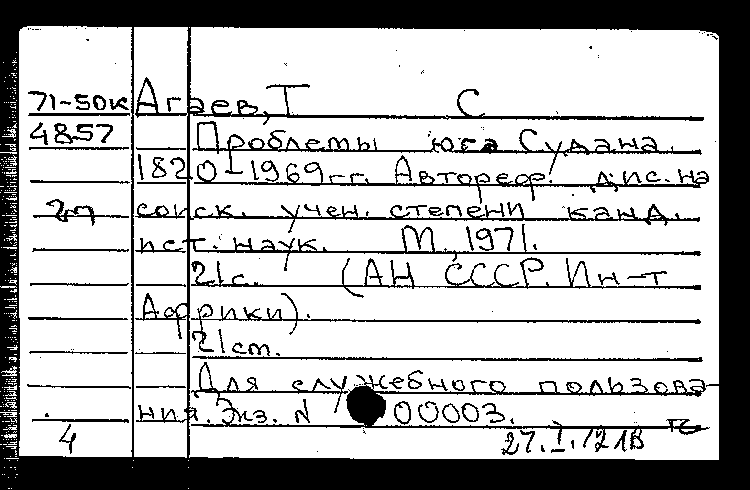 71-50к Агаев, Т С
4857 Проблемы юга Судана
1820-1969гг. Автореф. дис. на
соиск. учен. степени канд.
ист. наук. М., 1971.
21с. (АН СССР. Ин-т
Африки).
21 ст.
Для служебного пользова-
ния. Экз. N 00003.
4